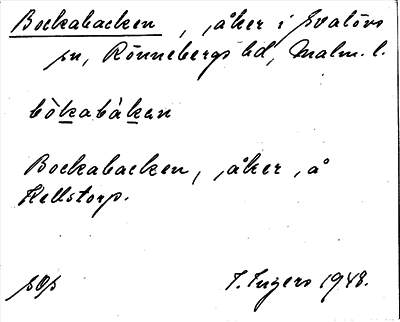 Bockabacken, åker i Svalövs
sn, Rönnebergs hd, Malm. l.
bòkabàken
Bockabacken, åker, å
Källstorp.
I. Ingers 1948.